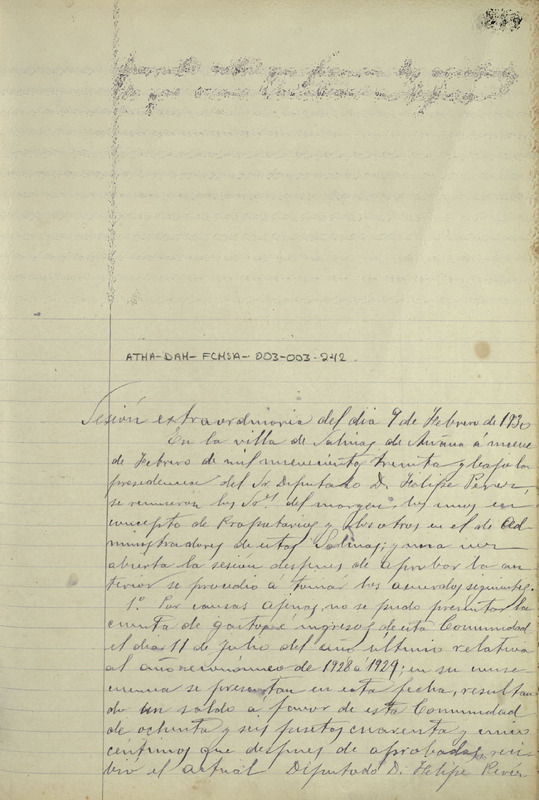 ATHA-DAH-FCMSA-003-003-242
Sesión extraordinaria del dia 9 de Febrero de 1930
En la villa de Salinas de Añana á nueve
de Febrero de mil novecientos treinta y bajo la
presidencia del Sr Diputado D. Felipe Perez,
se reunieron los Sres. del margen los unos en
concepto de Propietarios y los otros en el de Ad-
ministradores de estas Salinas; y una vez
abierta la sesión despues de aprobar la an-
terior se procedio a tomar los acuerdos siguientes.
1º. Por causas ajenas no se pudo presentar la
cuenta de gastos é ingresos de esta Comunidad
el dia 11 de Julio del año último relativa
al año economico de 1928 á 1929; en su conse-
cuencia se presentan en esta fecha, resultan-
do un saldo a favor de esta Comunidad
de ochenta y seis pesetas cuarenta y cinco
céntimos que despues de aprobadas, reci-
bió el actual Diputado D. Felipe Perez